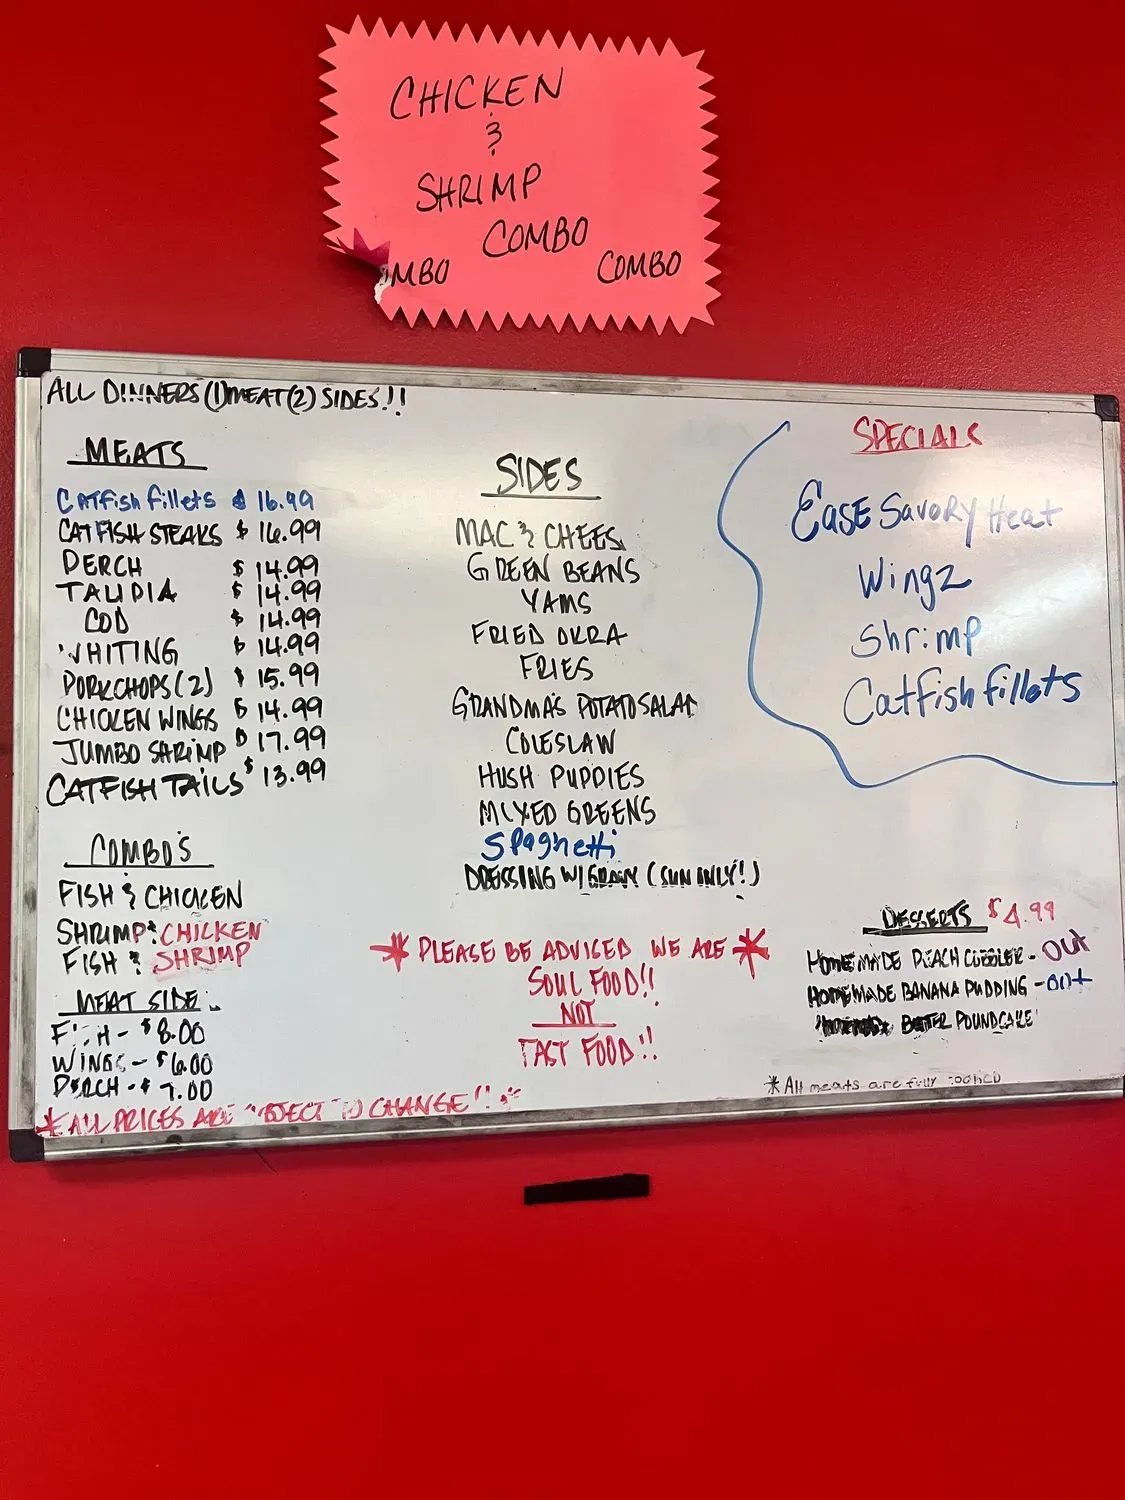 CHICKEN
&
SHRIMP
COMBO
COMBO
ALL DINNERS (1) MEAT (2) SIDES!!
MEATS
CATfish fillets $ 16.99
CATFISH STEAKS $ 16.99
PERCH $ 14.99
TALIDIA $ 14.99
COD $ 14.99
WHITING $ 14.99
PORKCHOPS (2) $ 15.99
CHICKEN WINGS $ 14.99
JUMBO SHRIMP $ 17.99
CATFISH TAILS $ 13.99
COMBO'S
FISH & CHICKEN
SHRIMP & CHICKEN
FISH & SHRIMP
MEAT SIDE
FISH - $8.00
WINGS - $6.00
PERCH - $7.00
*ALL PRICES ARE SUBJECT TO CHANGE!!*
SIDES
MAC & CHEES
GREEN BEANS
YAMS
FRIED OKRA
FRIES
GRANDMA'S POTATO SALAD
COLESLAW
HUSH PUPPIES
MIXED GREENS
Spaghetti
DRESSING W/GRAVY (SUN ONLY!)
* PLEASE BE ADVISED WE ARE *
SOUL FOOD!!
NOT
FAST FOOD!!
SPECIALS
EASE SavoRY Heat
Wingz
Shrimp
Catfish fillets
DESSERTS $4.99
HOMEMADE PEACH COBBLER - OUT
HOMEMADE BANANA PUDDING - OUT
BUTTER POUNDCAKE
*All meats are fully cooked